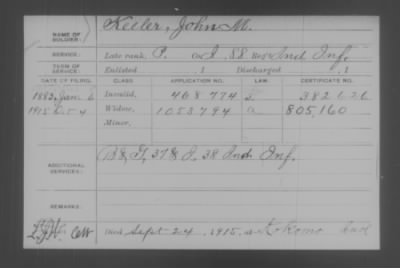 NAME OF SOLDIER: Keeler, John M.
SERVICE: Late rank, P. Co I, 88 Reg't Ind Inf.
TERM OF SERVICE: Enlisted , 1 Discharged , 1
DATE OF FILING. CLASS. APPLICATION NO. LAW. CERTIFICATE NO.
1883, Jan 6 Invalid, 468 774 382626
1915 Oct 4 Widow, 1053794 805,160
Minor,
ADDITIONAL SERVICES: 37 & 38 Ind. Inf.
REMARKS:
Died Sept 24, 1915, at Kokomo Ind